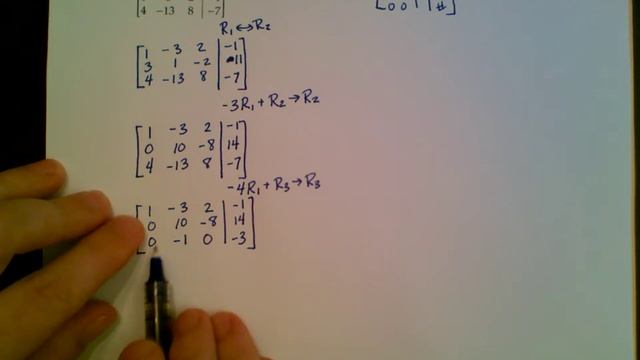 4 -13 8 | -7
[0 0 1 | #]
R₁ ↔ R₂
1 -3 2 | -1
3 1 -2 | 11
4 -13 8 | -7
-3R₁ + R₂ → R₂
1 -3 2 | -1
0 10 -8 | 14
4 -13 8 | -7
-4R₁ + R₃ → R₃
1 -3 2 | -1
0 10 -8 | 14
0 -1 0 | -3